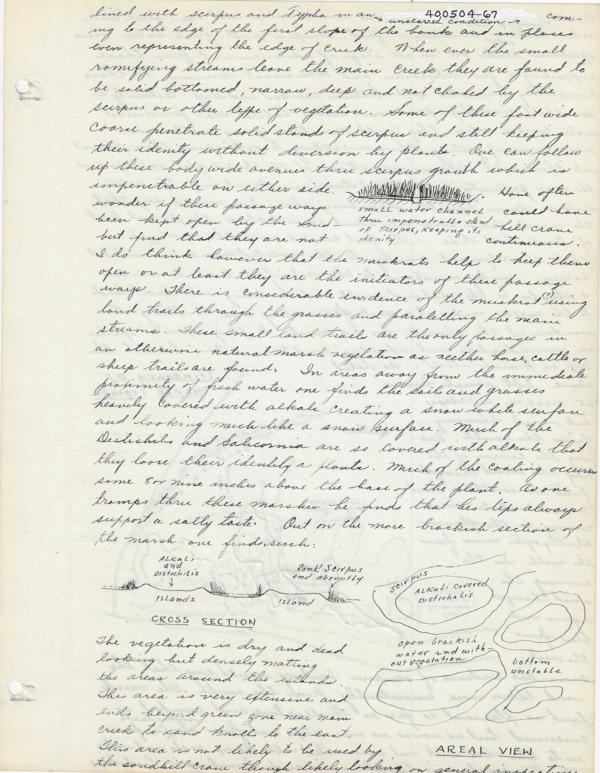 400504-67
lined with scirpus and Typha in an unscarred condition com-
ing to the edge of the first slope of the banks and in places
even representing the edge of creek. When ever the small
ramifying streams leave the main creek they are found to
be solid bottomed, narrow, deep and not choked by the
scirpus or other type of vegetation. Some of these foot wide
course penetrate solid stands of scirpus and still keeping
their idenity without diversion by plants. One can follow
up these body wide avenues thru scirpus growth which is
impenetrable on either side. Have often
wonder if these passage ways could have
been kept open by the sand- hill crane
but find that they are not continuous.
small water channel
thru impenatrable stand
of scirpus, keeping its
idenity
I do think however that the muskrats help to keep them
open or at least they are the initiators of these passage
ways. There is considerable evidence of the muskrat (?) using
land trails through the grasses and paralelling the main
streams. These small land trails are the only passages in
an otherwise natural marsh vegetation as neither horse, cattle or
sheep trails are found. In areas away from the immediate
proximity of fresh water one finds the soils and grasses
heavily covered with alkali creating a snow white surface
and looking much like a snow surface. Much of the
Distichilis and Salicornia are so covered with alkali that
they loose their identity as plants. Much of the coating occurrs
some 8 or nine inches above the base of the plant. As one
tramps thru these marshes he finds that his lips always
support a salty taste. Out on the more brackish section of
the marsh one finds such:
ALKALI
and
Distichilis
Rank Scirpus
end abruptly
ISLANDS
ISLAND
CROSS SECTION
Scirpus
ALKALI Covered
Distichalis
open brackish
water and with-
out vegetation
bottom
unstable
AREAL VIEW
The vegetation is dry and dead
looking but densely matting
the areas around the islands.
This area is very extensive and
ends beyond green zone near main
creek to sand knolls to the east.
This area is not likely to be used by
the sandhill crane though likely looking on general inspection